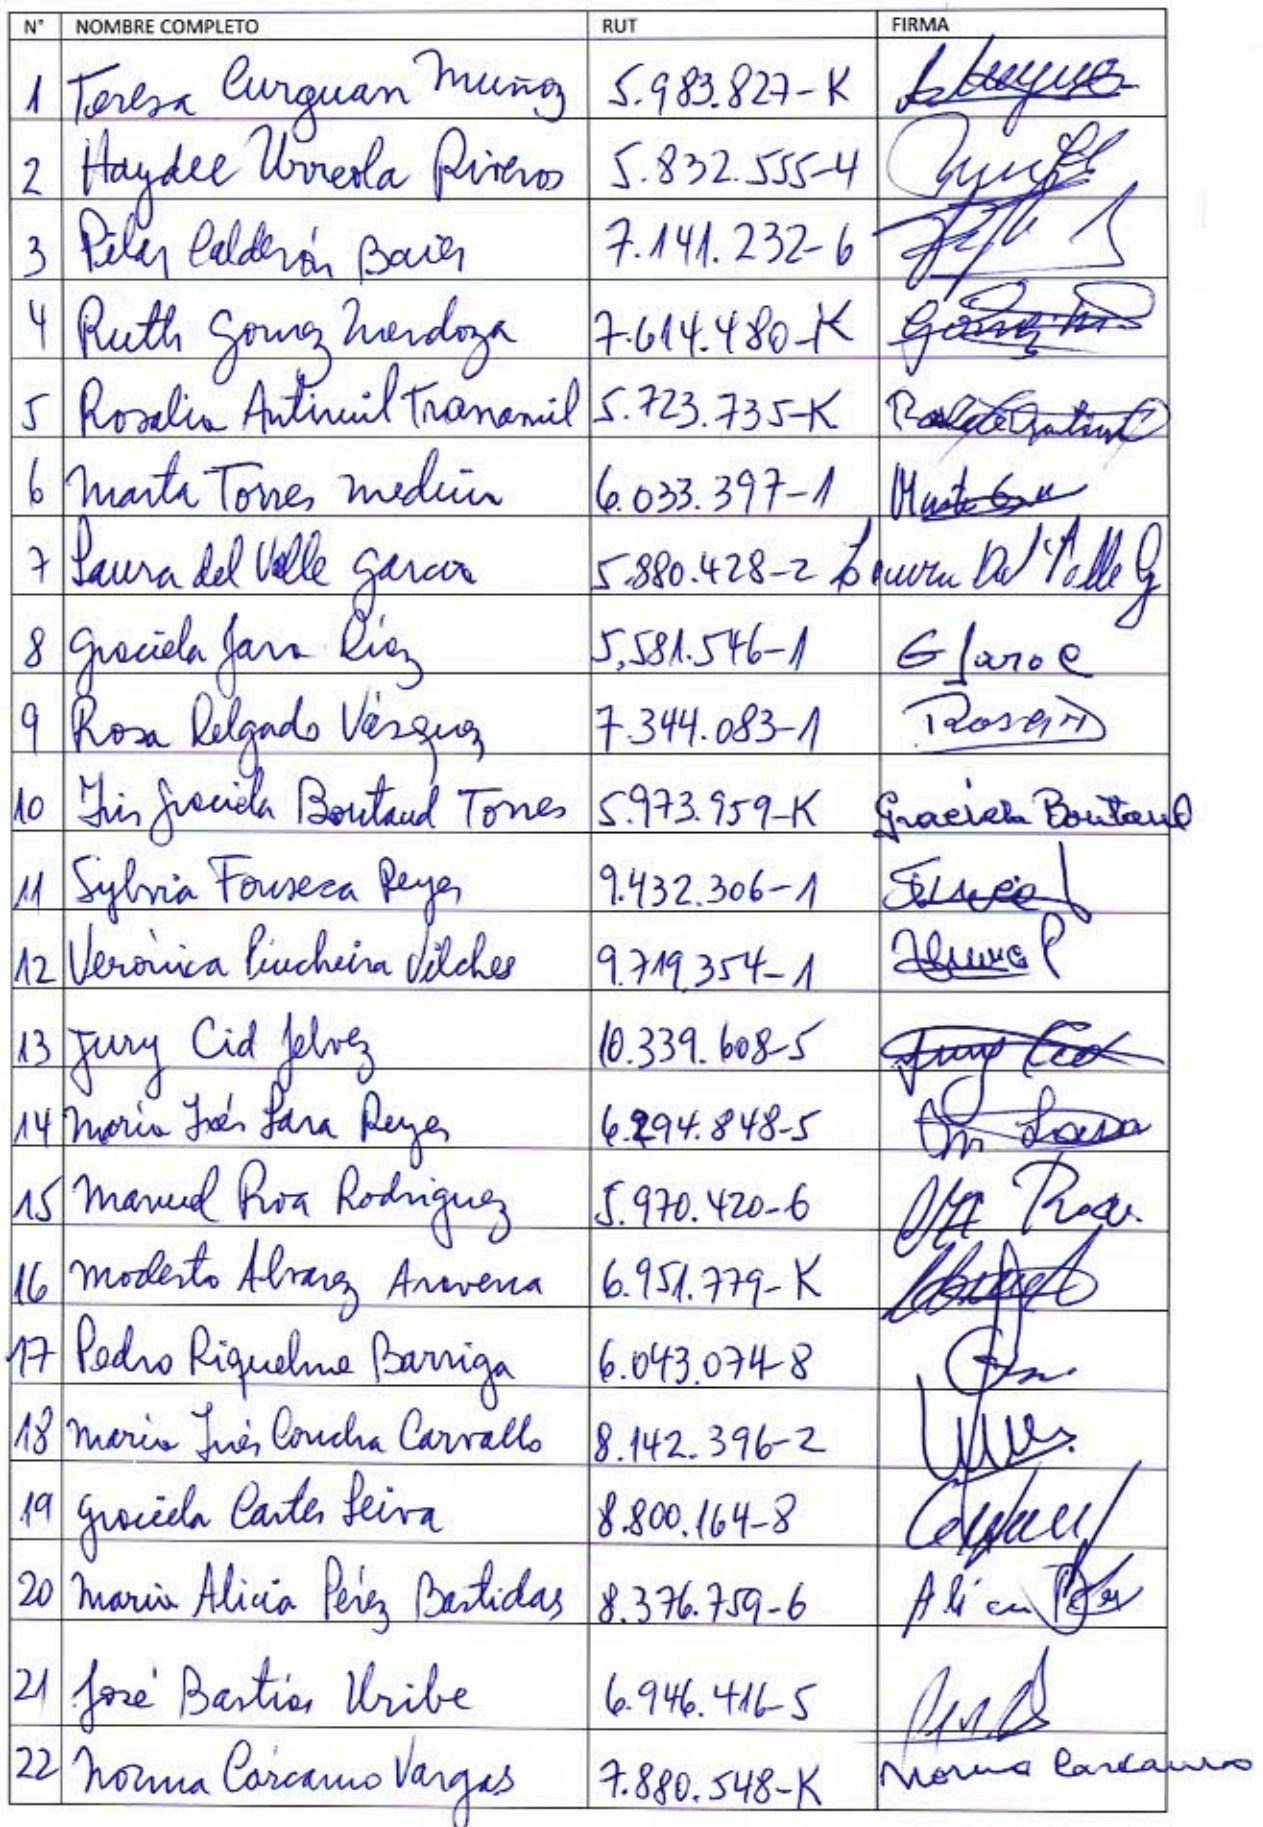 N° NOMBRE COMPLETO RUT FIRMA
1 Teresa Curguan Muñoz 5.983.827-K
2 Haydee Urreola Riveros 5.832.555-4
3 Pilar Calderón Baier 7.141.232-6
4 Ruth Gomez Mendoza 7.614.480-K
5 Rosalia Antimil Tranamil 5.723.735-K
6 Marta Torres Medina 6.033.397-1
7 Laura del Valle Garcia 5.880.428-2 Laura Del Valle G
8 Graciela Jara Diaz 5,581.546-1 G Jara
9 Rosa Delgado Vásquez 7.344.083-1
10 Iris Graciela Boutaud Torres 5.973.959-K Graciela Boutaud
11 Sylvia Fonseca Reyes 9.432.306-1
12 Verónica Pincheira Vilches 9.719.354-1
13 Jury Cid Jelvez 10.339.608-5 Jury Cid
14 Maria Inés Lara Reyes 6.294.848-5 Lara
15 Manuel Roa Rodriguez 5.970.420-6 Roa
16 Modesto Alvarez Aravena 6.951.779-K
17 Pedro Riquelme Barriga 6.043.074-8
18 Maria Inés Concha Carvallo 8.142.396-2
19 Graciela Cartes Leiva 8.800.164-8
20 Maria Alicia Pérez Bastidas 8.376.759-6 Alicia
21 José Bastias Uribe 6.946.416-5
22 Norma Cárcamo Vargas 7.880.548-K Norma Carcamo